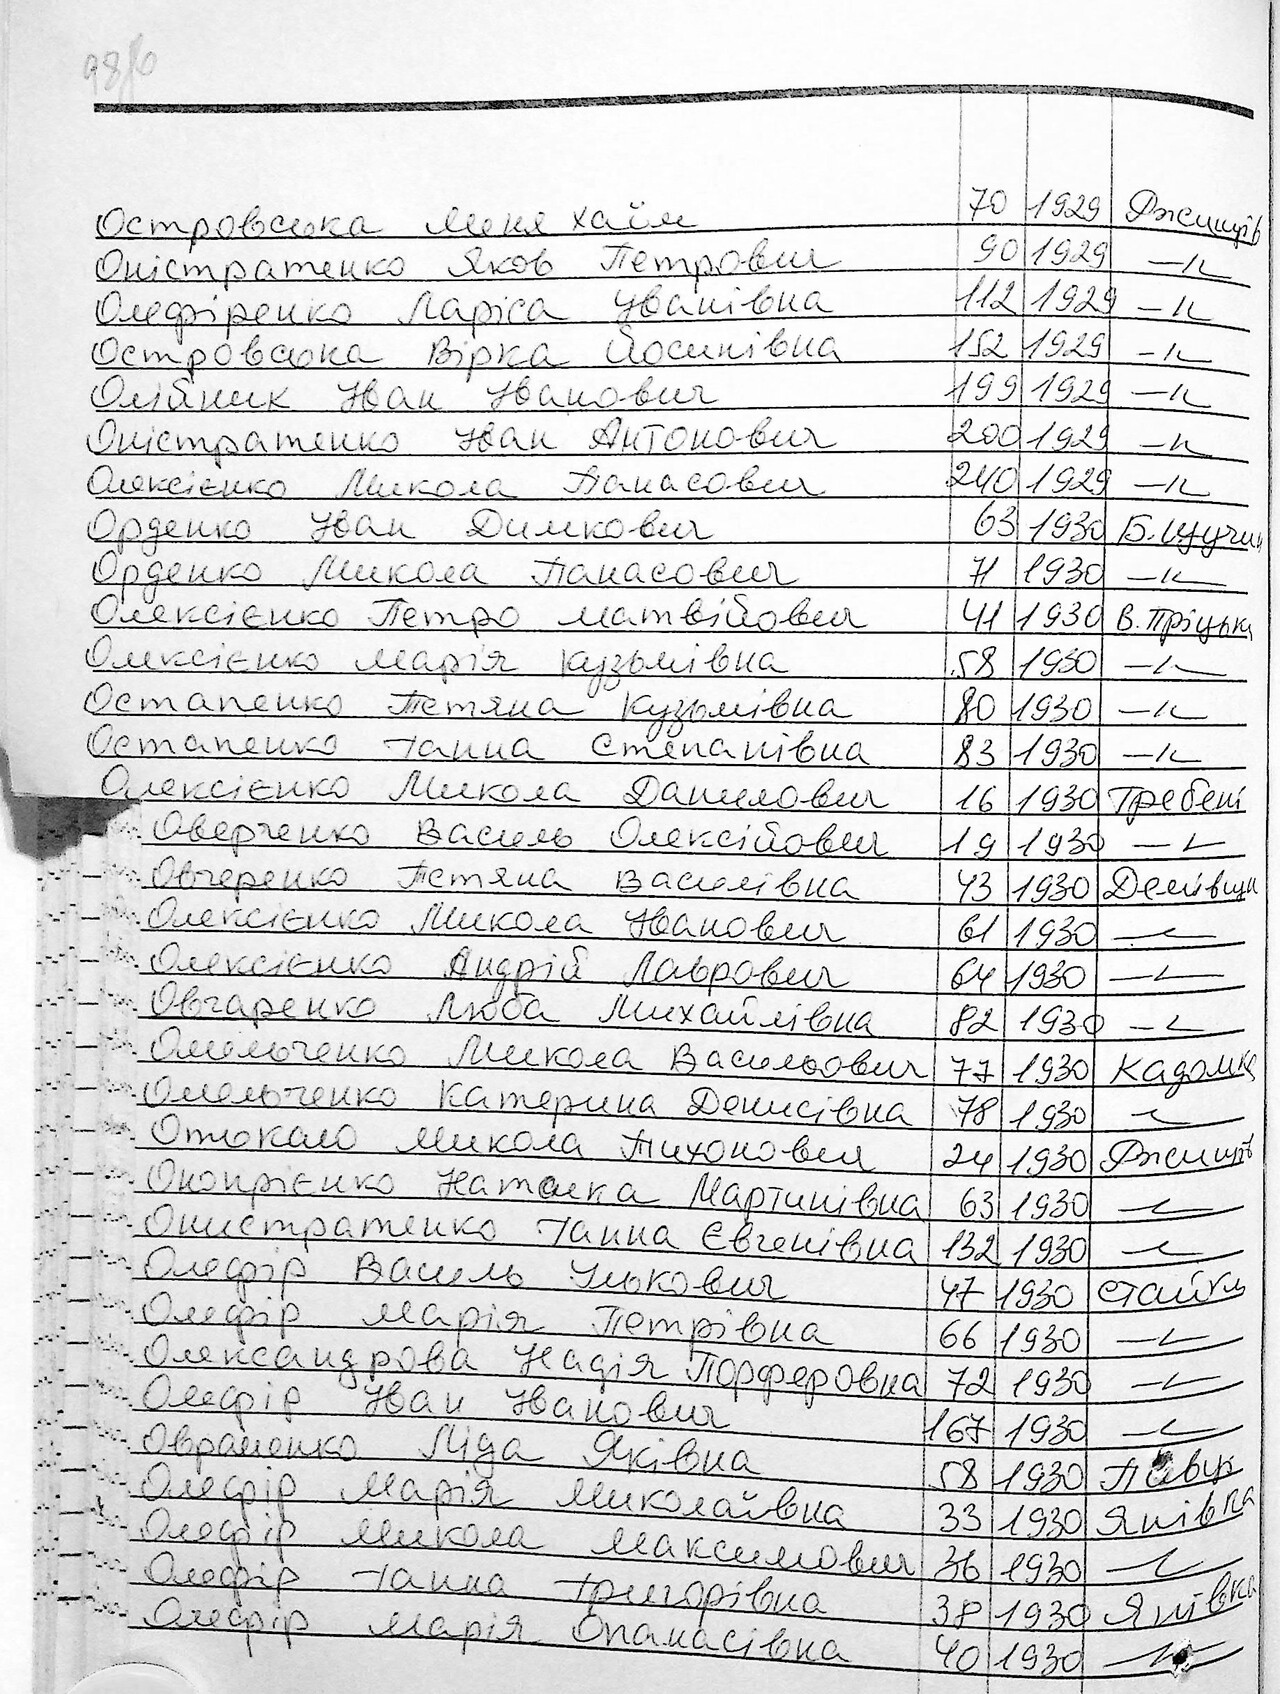 98/б
Островська Меня Хайм 70 1929 Ржищів
Оністратенко Яков Петрович 90 1929 —"—
Олефіренко Ларіса Іванівна 112 1929 —"—
Островська Вірка Йосипівна 152 1929 —"—
Олійник Іван Іванович 199 1929 —"—
Оністратенко Іван Антонович 200 1929 —"—
Олексієнко Микола Панасович 240 1929 —"—
Орденко Іван Димкович 63 1930 Б.Щучин
Орденко Микола Панасович 71 1930 —"—
Олексієнко Петро Матвійович 41 1930 В.Пріцьки
Олексієнко Марія Кузьмівна 58 1930 —"—
Остапенко Тетяна Кузьмівна 80 1930 —"—
Остапенко Ганна Степанівна 83 1930 —"—
Олексієнко Микола Данилович 16 1930 Гребені
Оверченко Василь Олексійович 19 1930 —"—
Овчеренко Тетяна Василівна 43 1930 Демівщи
Олексієнко Микола Іванович 61 1930 —"—
Олексієнко Андрій Лаврович 64 1930 —"—
Овчаренко Люба Михайлівна 82 1930 —"—
Омельченко Микола Васильович 77 1930 Кадомка
Омельченко Катерина Денисівна 78 1930 —"—
Отокало Микола Тихонович 24 1930 Ржищів
Онопрієнко Наталка Мартинівна 63 1930 —"—
Онистратенко Ганна Євгенівна 132 1930 —"—
Олефір Василь Улькович 47 1930 Стайки
Олефір Марія Петрівна 66 1930 —"—
Олександрова Надія Порферовна 72 1930 —"—
Олефір Іван Іванович 167 1930 —"—
Овраменко Ліда Яківна 58 1930
Олефір Марія Миколаївна 33 1930 Янівка
Олефір Микола Максимович 36 1930 —"—
Олефір Ганна Григорівна 38 1930 Янівка
Олефір Марія Опанасівна 40 1930 —"—